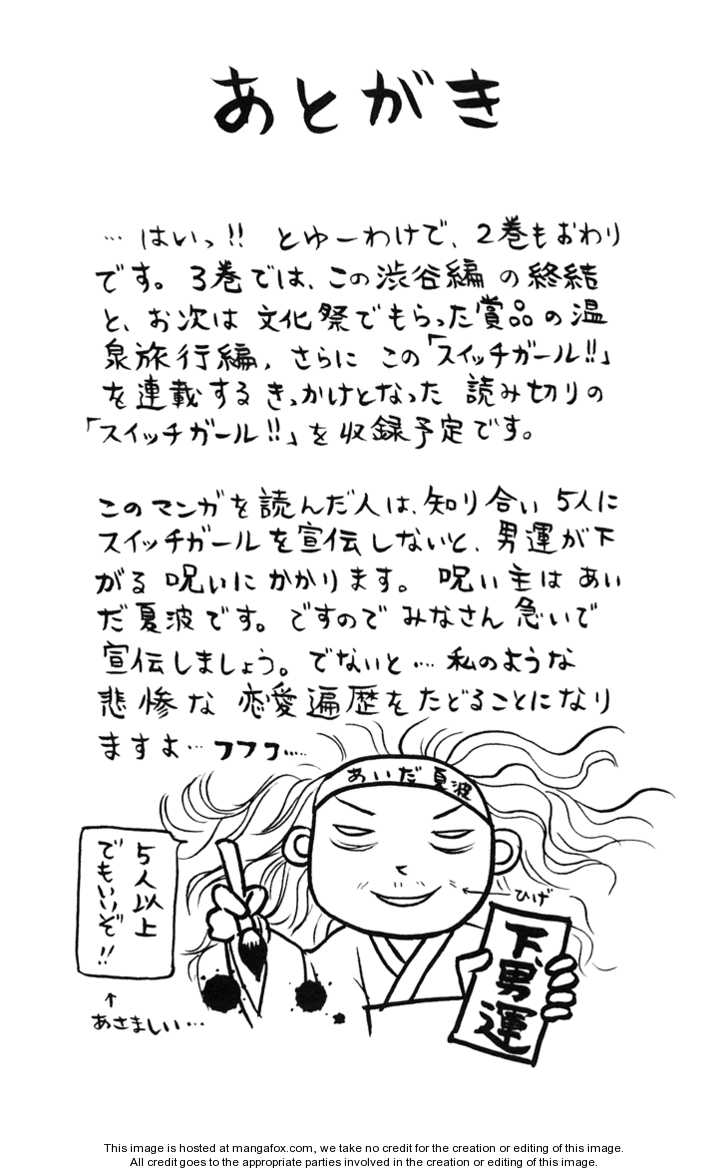 あとがき
… はいっ!! とゆーわけで、2巻もおわり
です。3巻では、この渋谷編の終結
と、お次は 文化祭でもらった賞品の温
泉旅行編、さらに この「スイッチガール!!」
を連載するきっかけとなった 読み切りの
「スイッチガール!!」を収録予定です。
このマンガを読んだ人は、知り合い5人に
スイッチガールを宣伝しないと、男運が下
がる 呪いにかかります。 呪い主は あい
だ夏波です。ですので みなさん 急いで
宣伝しましょう。でないと… 私のような
悲惨な 恋愛遍歴をたどることになり
ますよ… フフフ……
あいだ夏波
5人以上
でもいいぞ!!
↑
あさましい…
ひげ
下、男運
This image is hosted at mangafox.com, we take no credit for the creation or editing of this image.
All credit goes to the appropriate parties involved in the creation or editing of this image.